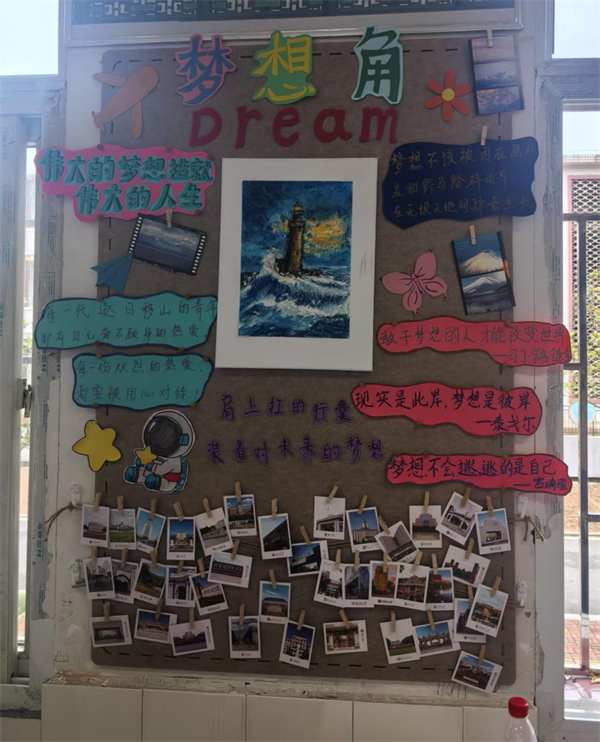 梦想角
Dream
伟大的梦想造就
伟大的人生
梦想不该被困在
在无垠天地间
每一代逐日移山的青年
都有自己奋不顾身的热爱
每一份炽烈的热爱
都要被用心对待！
敢于梦想的人才能改变世界
肩上扛的行囊
装着对未来的梦想
现实是此岸，梦想是彼岸
—泰戈尔
梦想不会逃，逃的是自己